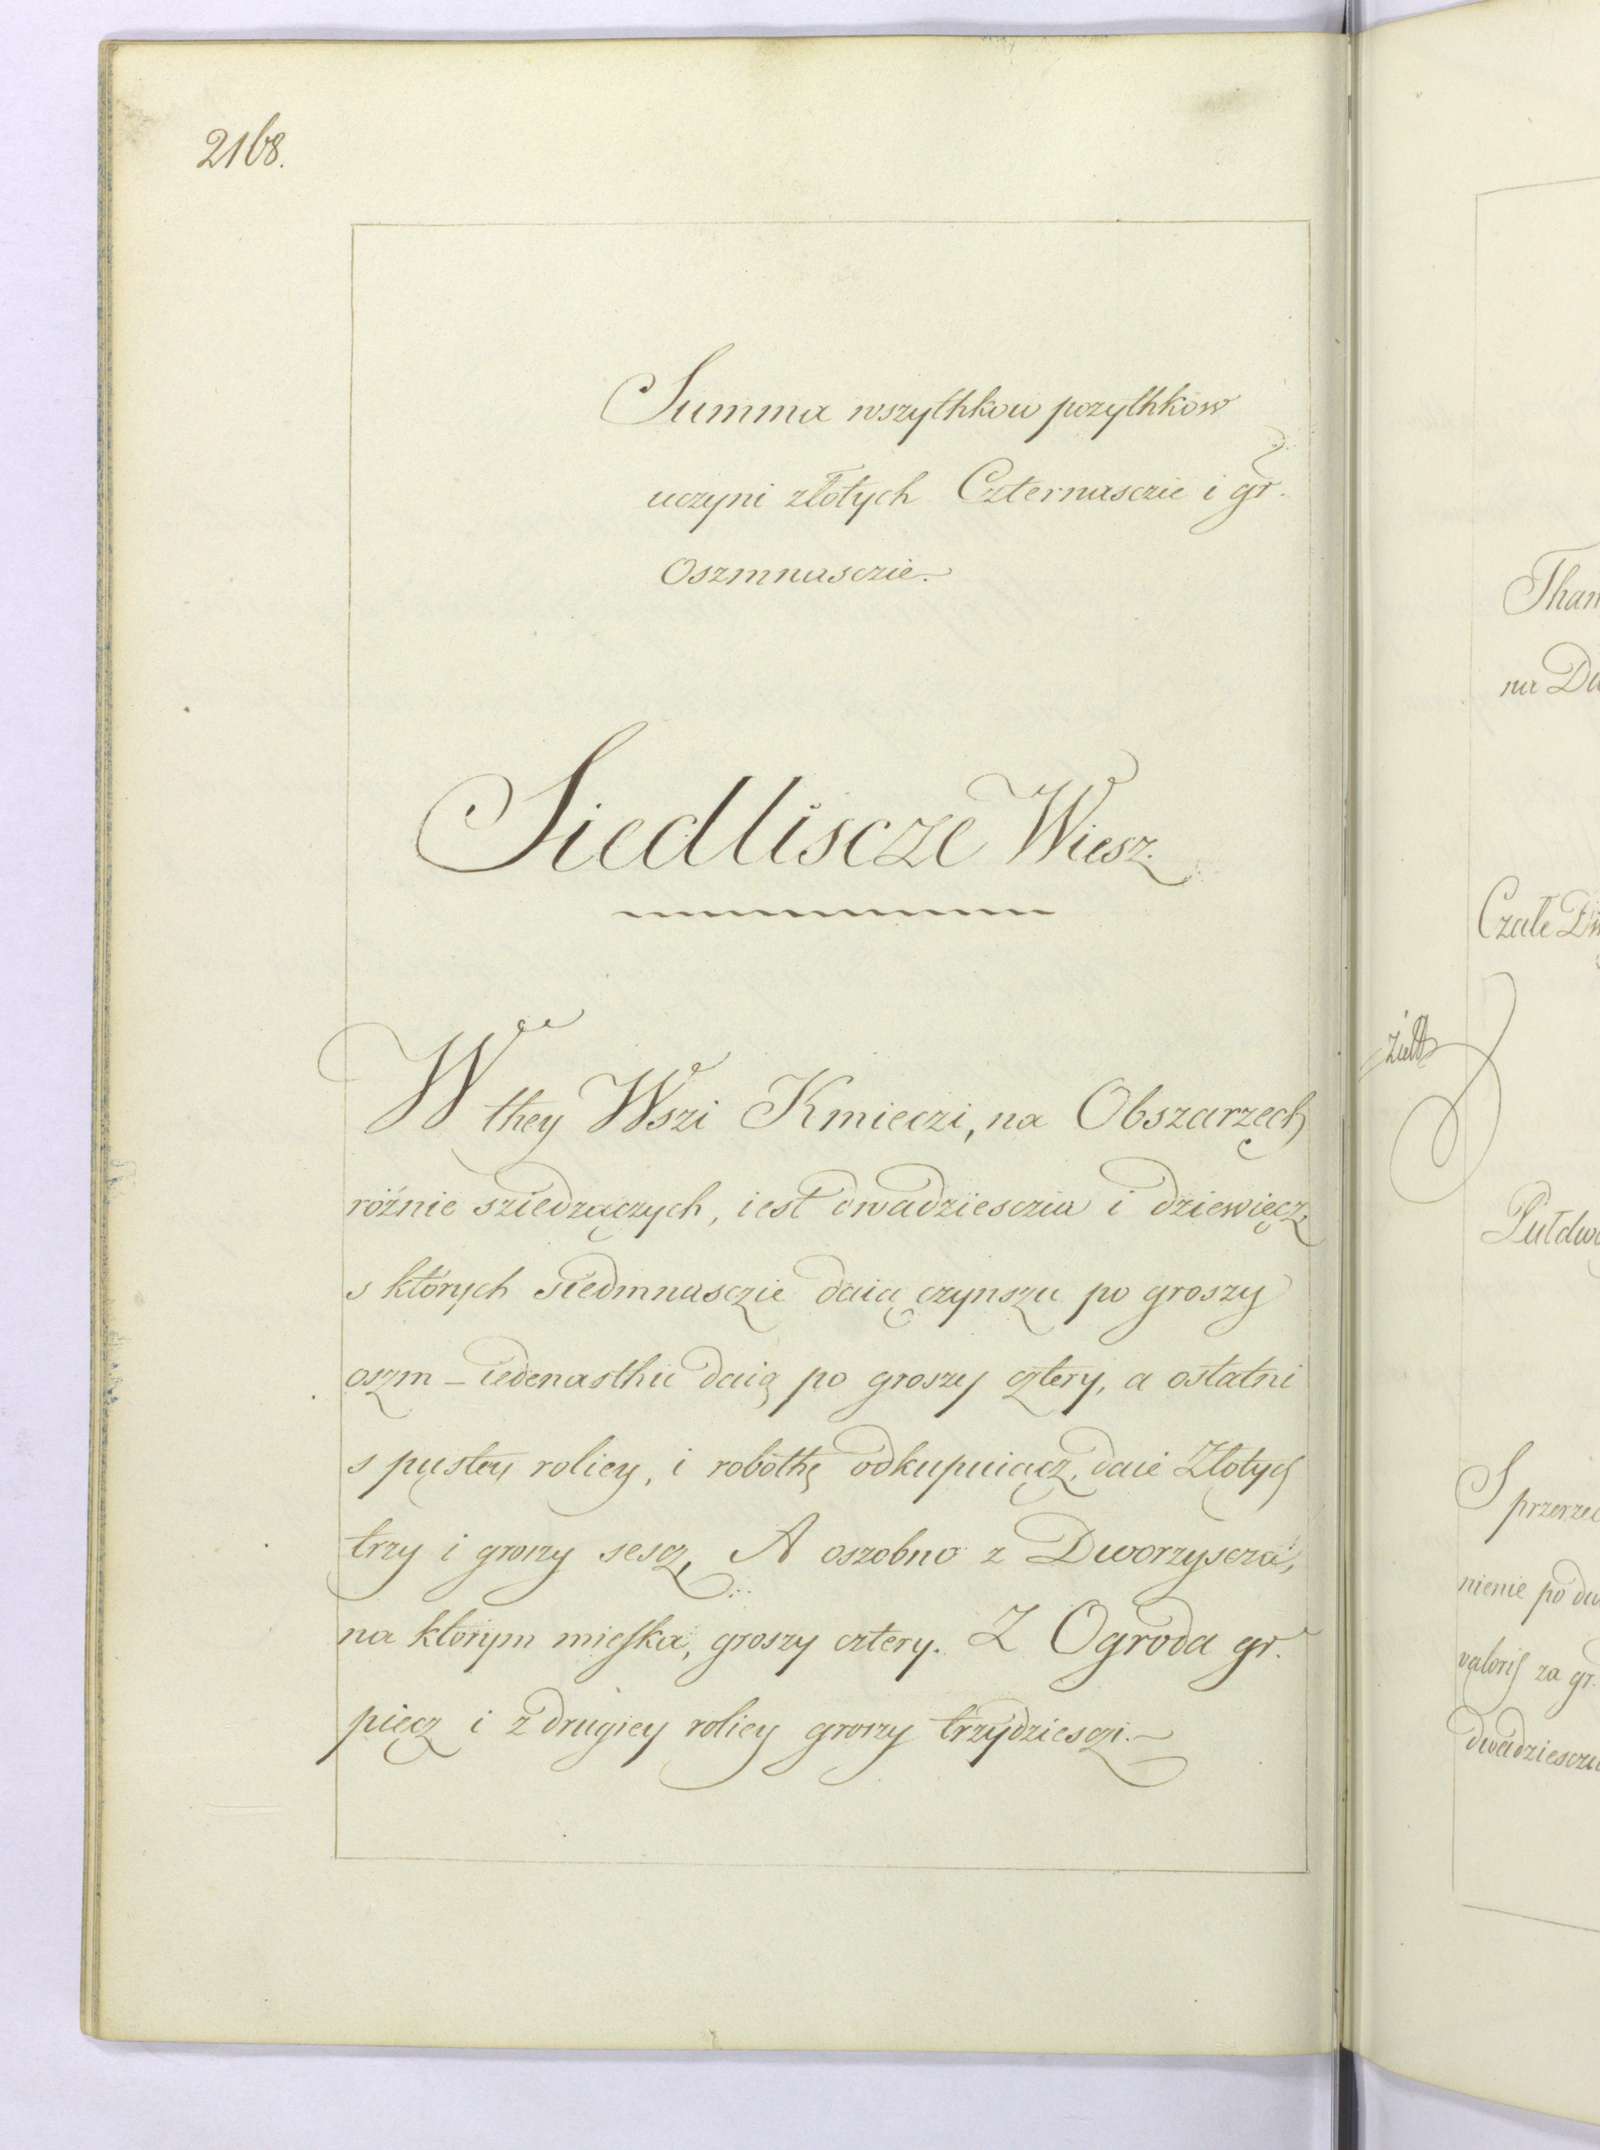 2168.
Summa wszythkow pozythkow
uczyni złotych Czternasczie i gr.
Oszmnasczie.
Siedliscze Wiesz.
W they Wszi Kmieczi, na Obszarzech
różnie sziedzączych, iest dwadziesczia i dziewięcz,
s których siedmnasczie daią czynszu po groszy
oszm – iedenasthu daią po groszy cztery, a ostatni
s pustey roliey, i robothę odkupuiącz, daie Złotych
trzy i groszy sescz, A oszobno z Dworzyscza,
na ktorym mieszka, groszy cztery. Z Ogroda gr.
pięcz i z drugiey roliey groszy trzydziesczi.
Than
na Dw
Czałe Dw
Pułdwo
S przerzec
nienie po dw
valoris za gr.
dwadziesczia